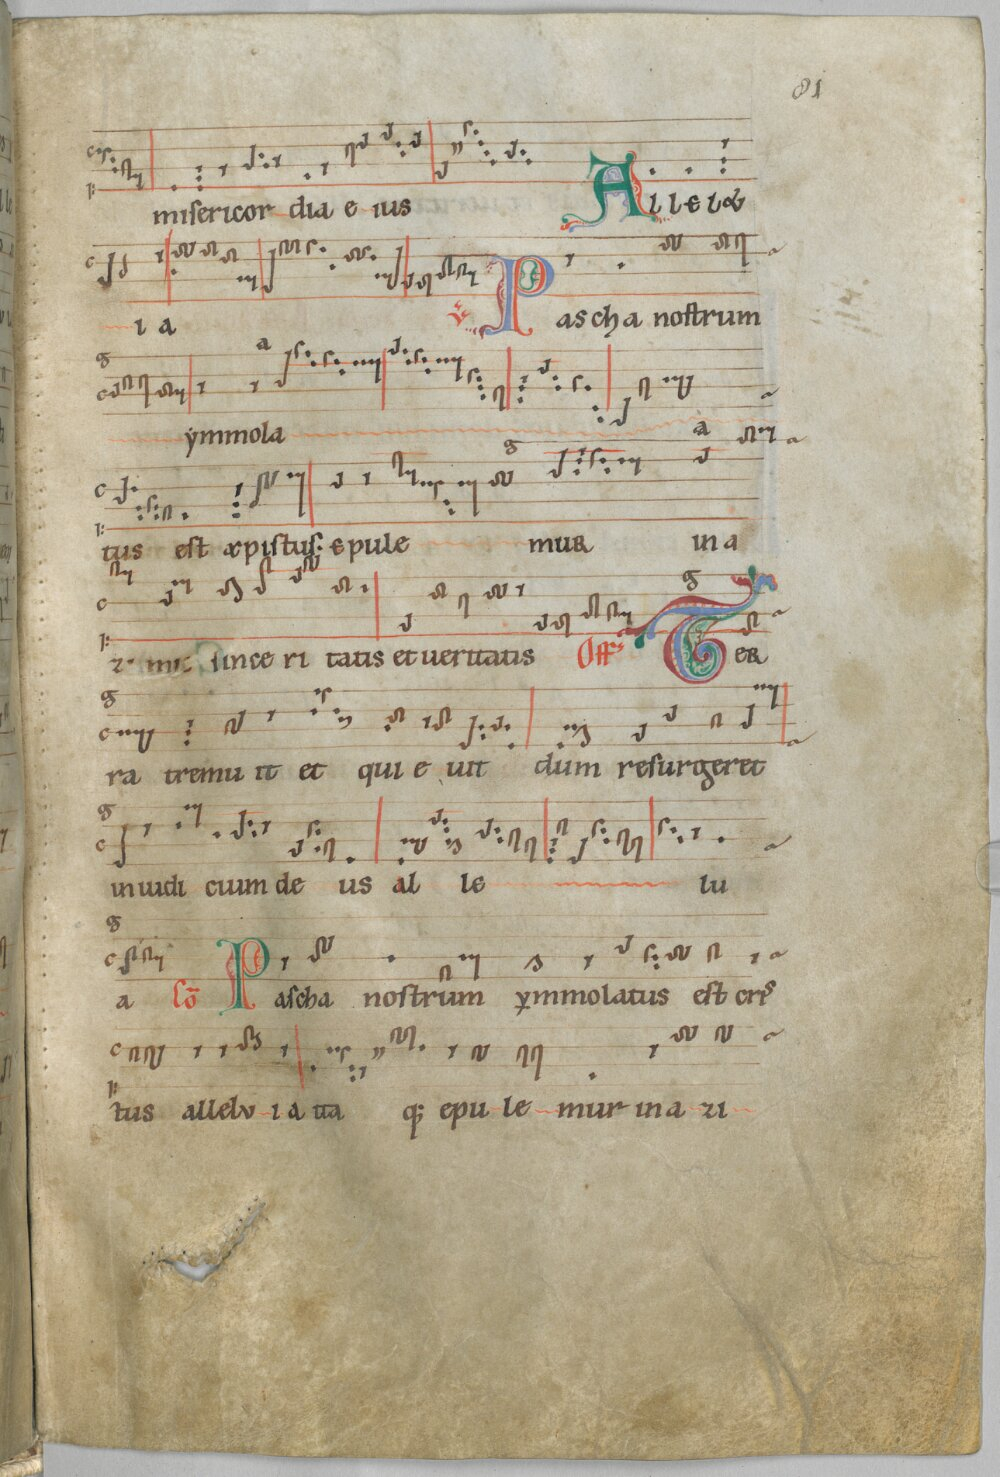 81
misericor dia e ius Allelv
ia ℣ Pascha nostrum
ymmola
tus est xpistus: epule mur in a
zi mis since ri tatis et ueritatis Off TER
ra tremu it et qui e uit dum resurgeret
in iudi cium de us al le lu
a Cō Pascha nostrum ymmolatus est cris
tus allelv ia ita q; epu le mur in a zi